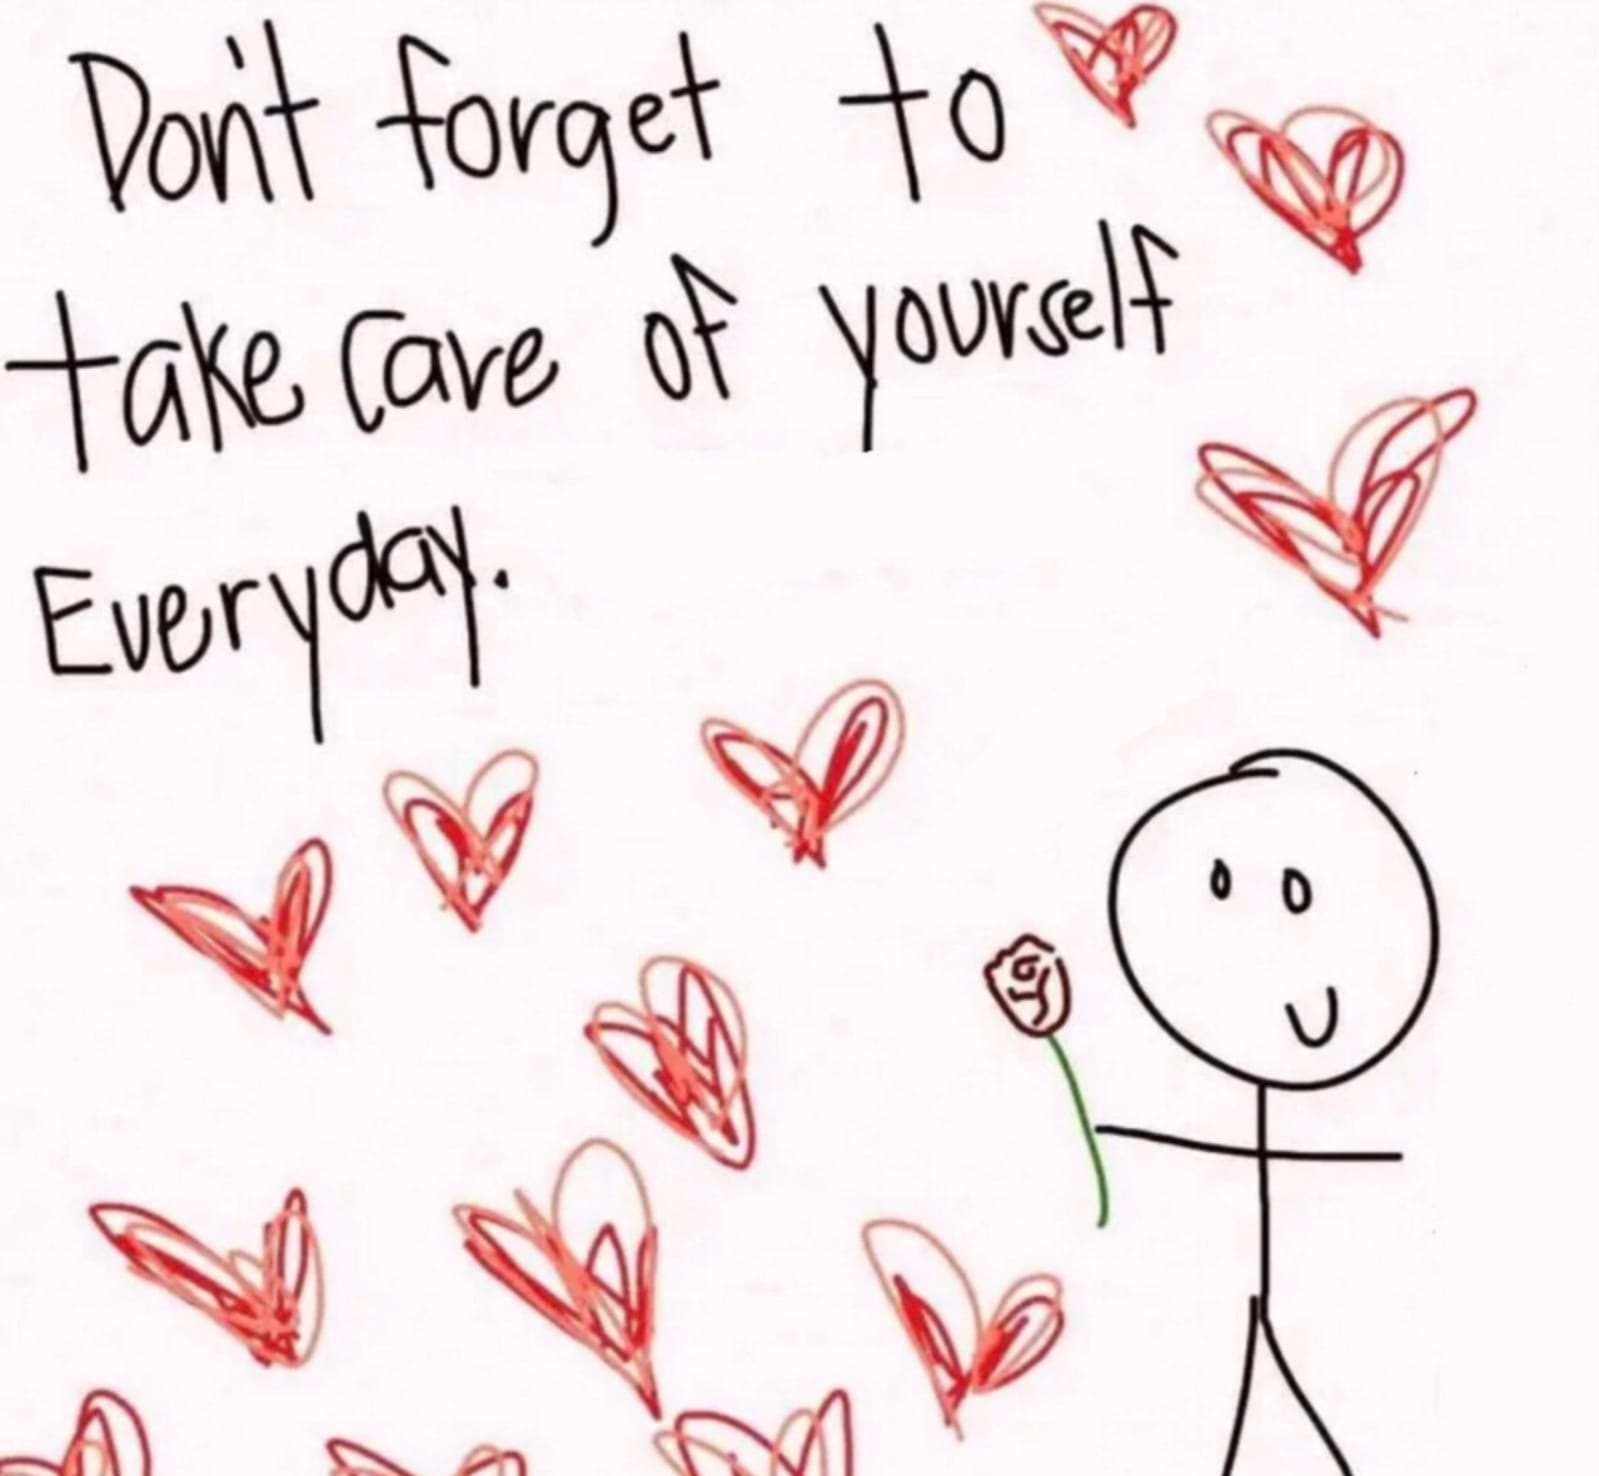 Don't forget to
take care of yourself
Everyday.